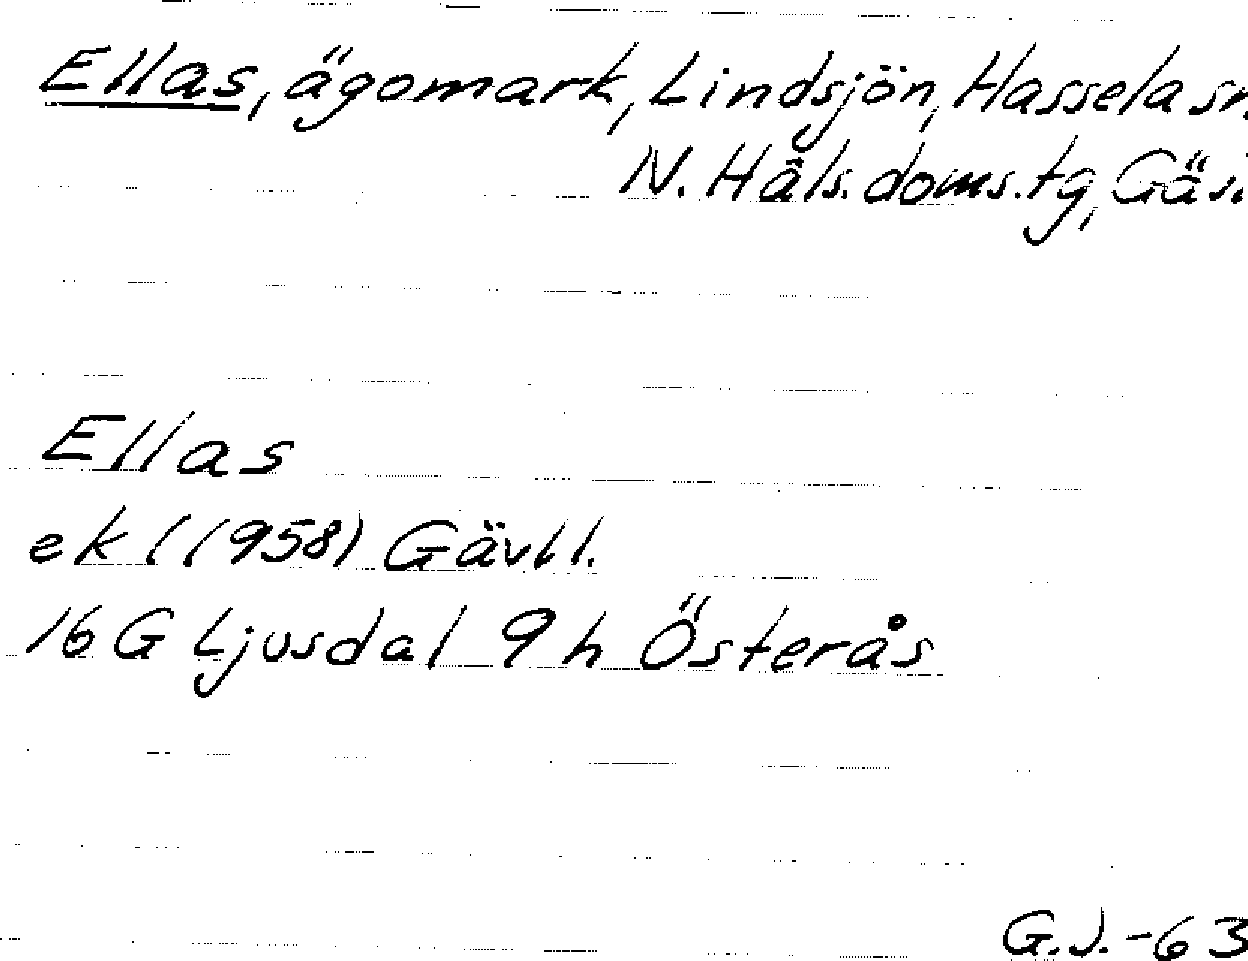 Ellas, ägomark, Lindsjön, Hassela sn
N. Häls. doms. tg, Gäv.
Ellas
ekl (1958) Gävll.
16 G Ljusdal 9 h Österås
G.J. -63